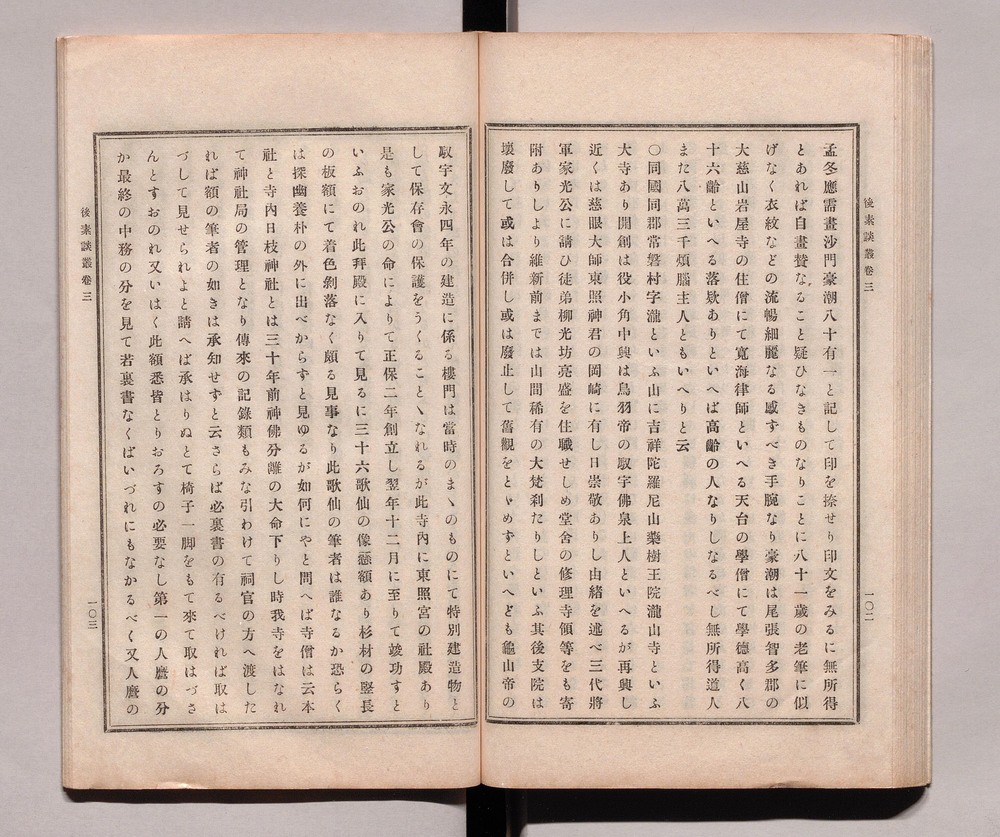 後素談叢卷三
一〇二
孟冬應需畫沙門豪潮八十有一と記して印を捺せり印文をみるに無所得
とあれば自畫賛なること疑ひなきものなりことに八十一歳の老筆に似
げなく衣紋などの流暢細麗なる感ずべき手腕なり豪潮は尾張智多郡の
大慈山岩屋寺の住僧にて寬海律師といへる天台の學僧にて學德高く八
十六齡といへる落欵ありといへば高齡の人なりしなるべし無所得道人
また八萬三千煩腦主人ともいへりと云
〇同國同郡常磐村字瀧といふ山に吉祥陀羅尼山藥樹王院瀧山寺といふ
大寺あり開創は役小角中興は鳥羽帝の馭宇佛泉上人といへるが再興し
近くは慈眼大師東照神君の岡崎に有し日崇敬ありし由緒を述べ三代將
軍家光公に請ひ徒弟柳光坊亮盛を住職せしめ堂舍の修理寺領等をも寄
附ありしより維新前までは山間稀有の大梵刹たりしといふ其後支院は
壞廢して或は合併し或は廢止して舊觀をとゞめずといへども龜山帝の
馭宇文永四年の建造に係る樓門は當時のまゝのものにて特別建造物と
して保存會の保護をうくることゝなれるが此寺內に東照宮の社殿あり
是も家光公の命によりて正保二年創立し翌年十二月に至りて竣功すと
いふおのれ此拜殿に入りて見るに三十六歌仙の像懸額あり杉材の竪長
の板額にて着色剝落なく頗る見事なり此歌仙の筆者は誰なるか恐らく
は探幽養朴の外に出べからずと見ゆるが如何にやと問へば寺僧は云本
社と寺內日枝神社とは三十年前神佛分離の大命下りし時我寺をはなれ
て神社局の管理となり傳來の記錄類もみな引わけて祠官の方へ渡した
れば額の筆者の如きは承知せずと云さらば必裏書の有るべければ取は
づして見せられよと請へば承はりぬとて椅子一脚をもて來て取はづさ
んとすおのれ又いはく此額悉皆とりおろすの必要なし第一の人麿の分
か最終の中務の分を見て若裏書なくばいづれにもなかるべく又人麿の
後素談叢卷三
一〇三